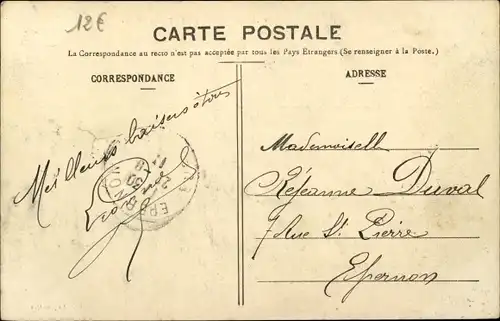 12€
CARTE POSTALE
La Correspondance au recto n'est pas acceptée par tous les Pays Etrangers (Se renseigner à la Poste.)
CORRESPONDANCE
ADRESSE
Meilleurs baisers à tous
Mademoiselle
Réjeanne Duval
7 Rue St Pierre
Epernon